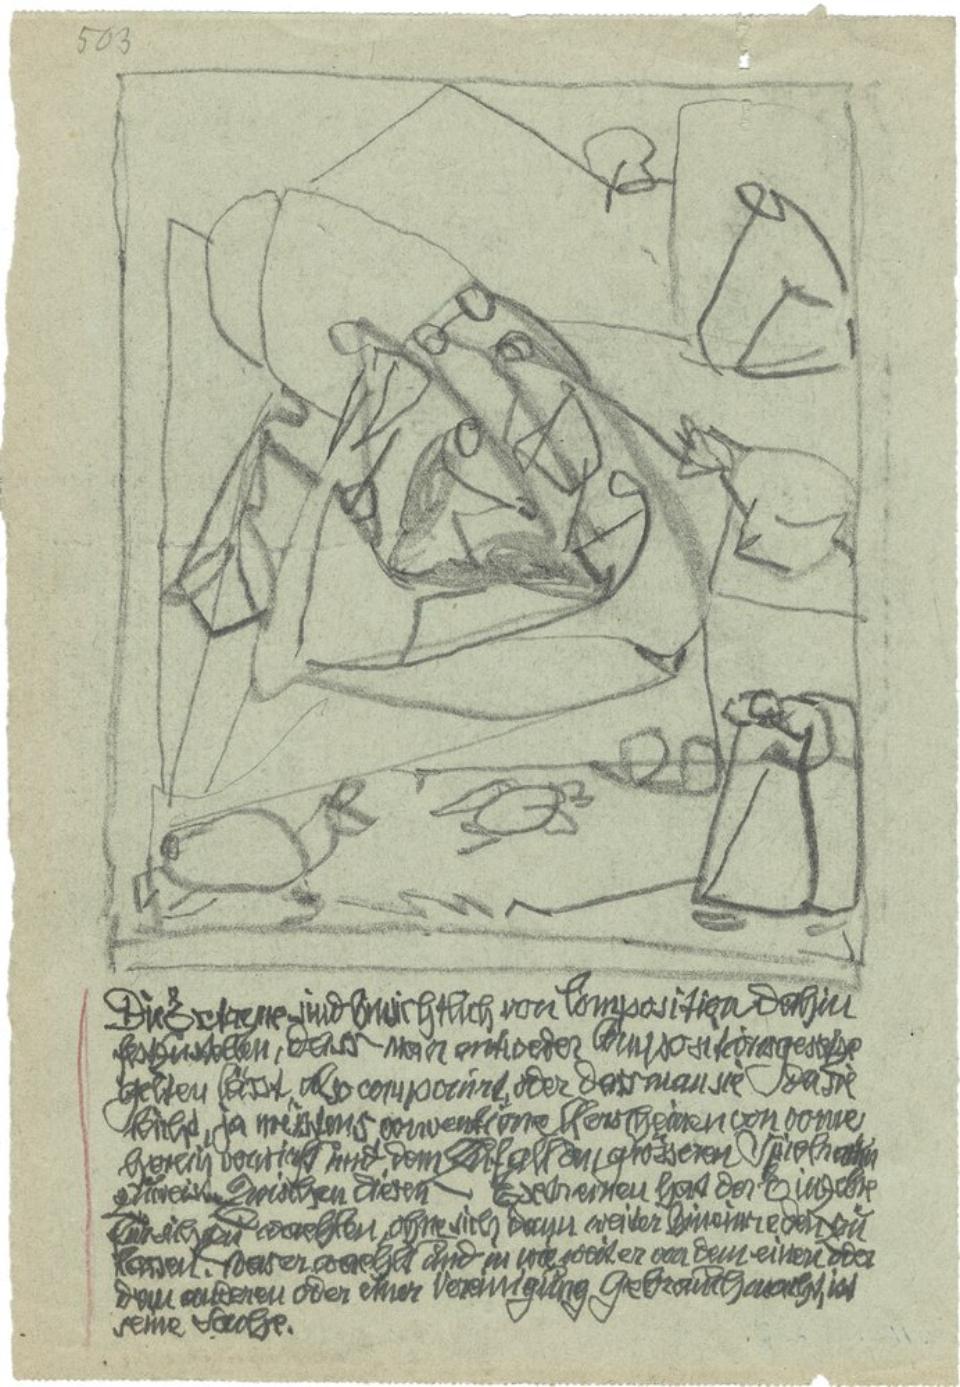 503
Die Extreme sind hinsichtlich von Composition dahin
festzustellen, dass man entweder Compositionsgesetze
gelten lässt, also componiert, oder dass man sie da sie
leicht, ja meistens conventionell erscheinen von vorne
herein verwirft und dem Zufall den grösseren Spielraum
Zwischen diesen Extremen hat der Einzelne
für sich zu waehlen, ohne sich dann weiter hineinreden zu
lassen. was er waehlt und in wie weit er von dem einen oder
dem anderen oder einer Vereinigung Gebrauch macht, ist
seine Sache.